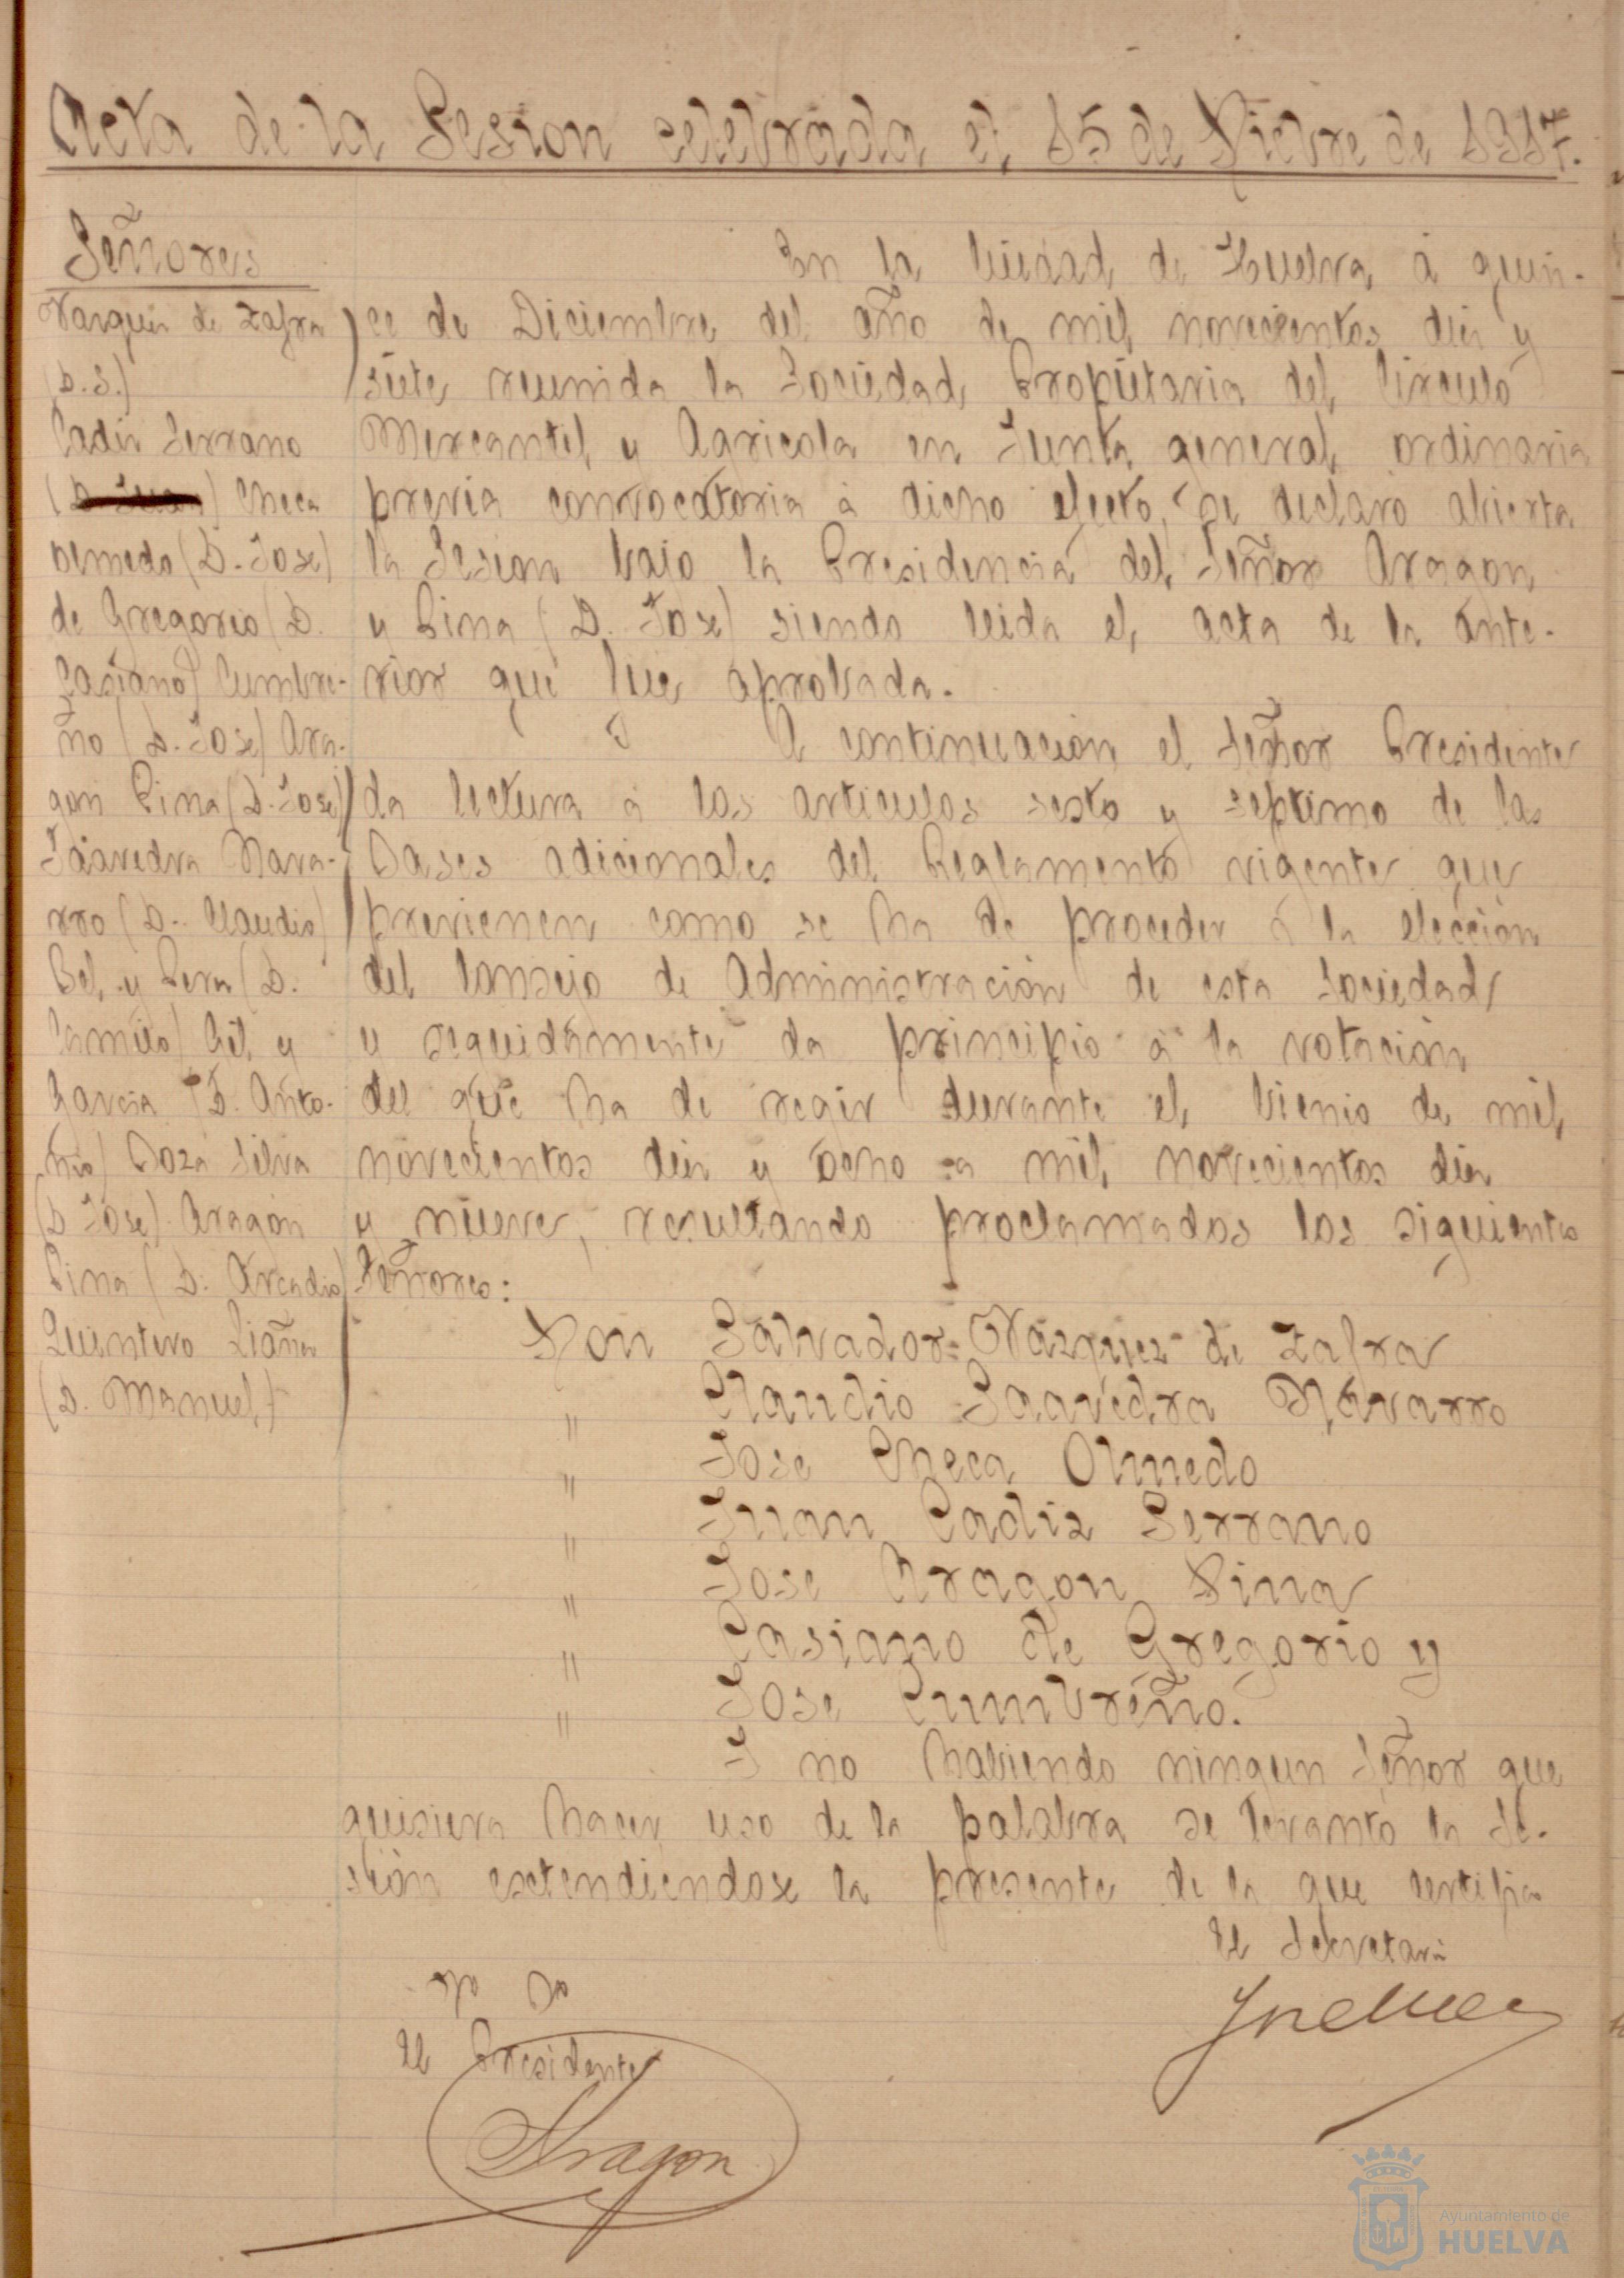 Acta de la Sesion celebrada el 15 de Dicbre de 1917.
Señores
Vazquez de Zafra
(D. S.)
Cadiz Serrano
(D. Juan) Checa
Olmedo (D. Jose)
de Gregorio (D.
Casiano) Cumbre-
ño (D. Jose) Ara-
gon Pina (D. Jose)
Saavedra Nava-
rro (D. Claudio)
Bel y Pera (D.
Camilo) Gil y
Garcia (D. Anto-
nio) Daza Silva
(D Jose) Aragon
Pina (D. Arcadio)
Quintero Liañez
(D. Manuel)
En la Ciudad de Huelva á quin-
ce de Diciembre del año de mil novecientos diez y
siete reunida la Sociedad Propietaria del Circulo
Mercantil y Agricola en Junta general ordinaria
previa convocatoria á dicho efecto, se declaró abierta
la Sesion bajo la Presidencia del Señor Aragon
y Pina (D. Jose) siendo leida el acta de la ante-
rior que fue aprobada.
A continuacion el Señor Presidente
da lectura á los articulos sesto y septimo de las
Bases adicionales del Reglamento vigente que
previenen como se ha de proceder á la elección
del Consejo de Administración de esta Sociedad
y seguidamente da principio á la votación
del que ha de regir durante el bienio de mil
novecientos diez y ocho a mil novecientos diez
y nueve, resultando proclamados los siguientes
Señores:
Don Salvador Vázquez de Zafra
" Claudio Saavedra Navarro
" Jose Checa Olmedo
" Juan Cadiz Serrano
" Jose Aragon Pina
" Casiano de Gregorio y
" Jose Cumbreño.
Y no habiendo ningun Señor que
quisiera hacer uso de la palabra se levantó la Se-
sión estendiendose la presente de la que certifico
El Secretario
Vº Bº
El Presidente
Aragon
Ayuntamiento de
HUELVA